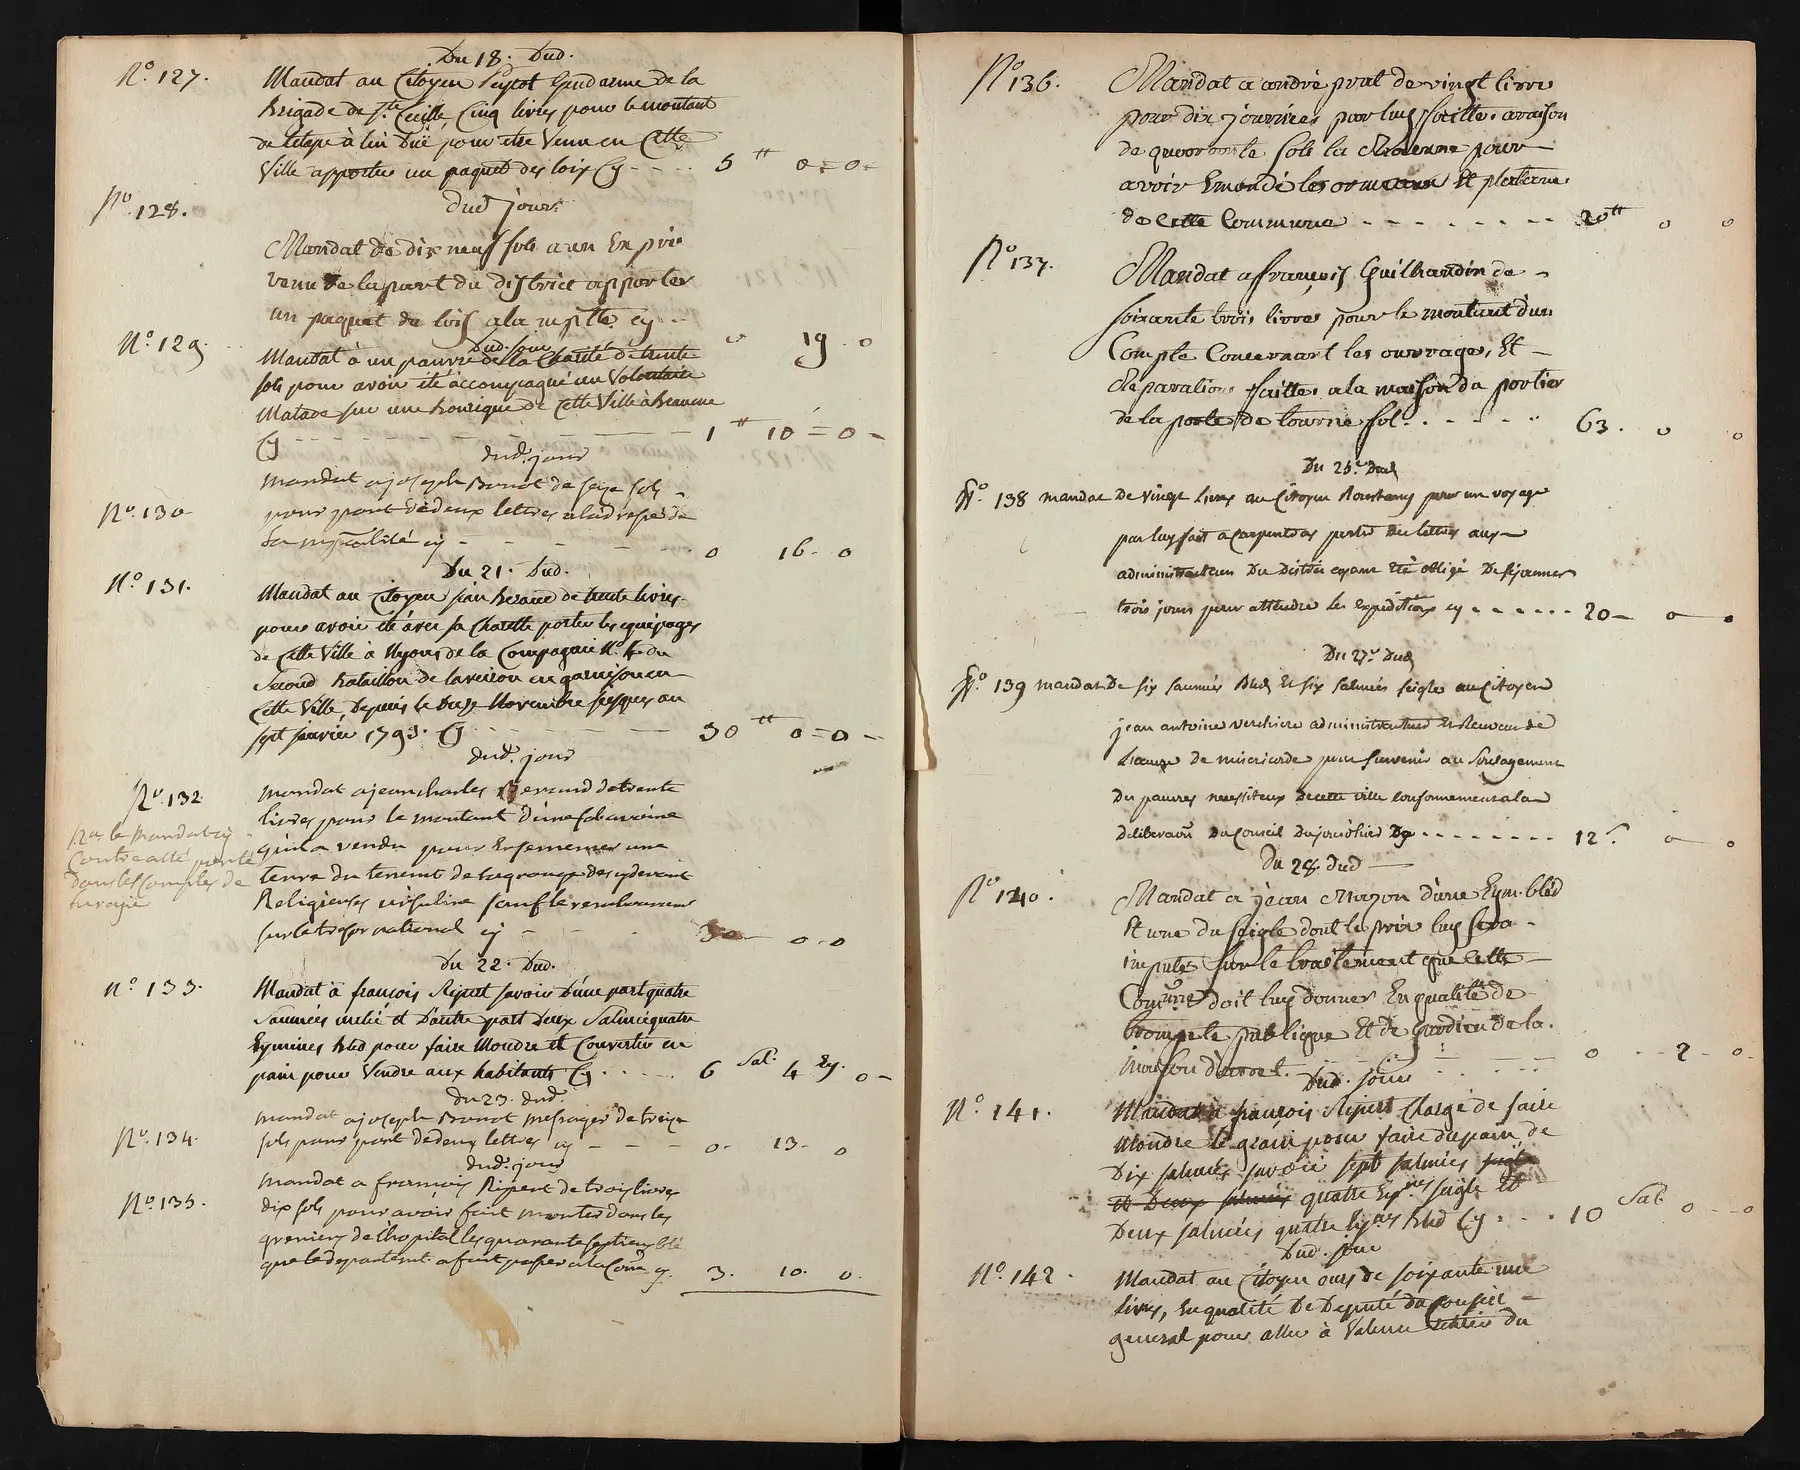 Du 18. Dud.
N.° 127. Mandat au Citoyen Peytot Gendarme de la
Brigade de S.te Cecille, Cinq livres pour le montant
de letape à lui Duë pour etre Venu en Cette
Ville apporter un paquet des loix Cy - - - - 5 tt 0 = 0 =
dud. jour
N.° 128.
Mandat de dix neuf sols a un Exprès
venu de la part du district apporter
un paquet de loix a la mplté cy - - 0 19 . 0
Dud. jour
N.° 129. Mandat à un pauvre de la Charité de trente
sols pour avoir été accompagné un Volontaire
Malade sur une Bourique de Cette Ville à Beaume
Cy - - - - - 1 tt 10 = 0 -
dud. jour
N.° 130 mandat a joseph Bonot de seze sols
pour port de deux lettres a ladresse de
la mpalité cy - - - - 0 16 - 0
Du 21. Dud.
N.° 131. Mandat au Citoyen jean Beraud de trente livres
pour avoir été avec sa Charette porter les equipages
de Cette Ville à Nyons de la Compagnie N.° 4 du
Second Bataillon de en garnison en
Cette Ville, Depuis le Douze Novembre jusques au
sept janvier 1793. Cy - - - 30 tt 0 = 0 -
dud. jour
N.° 132 mandat a jean charles Beraud de trente
livres pour le montant d'une sol. avoine
quil a vendu pour Ensemencer une
terre du tenemt de la grange des cydevant
Religieuses ursuline sauf le remboursement
sur le tresor national cy - - - 30 - 0 - 0
Nta le Mandat cy
Contre a été porté
dans les Comptes de
la regie
Du 22. Dud.
N.° 133. Mandat à françois Ripert savoir D'une part quatre
Saumées metié et D'autre part Deux Salmées quatre
Eymines Bled pour faire Moudre et Convertir en
pain pour Vendre aux habitants Cy - - - - 6 Sal. 4 Ey. 0 -
du 23. dud.
N.° 134. mandat a joseph Bonot messager de treize
sols pour port de deux lettres cy - - - 0 - 13 - 0
dud. jour
N.° 135. mandat a françois Ripert de trois livres
dix sols pour avoir fait monter dans les
greniers de l'hopital les quarante sept blé
que le departemt a fait passer a la Come cy 3. 10. 0.
N.° 136. Mandat a andré prat de vingt livres
pour dix journées par luy faittes, a raison
de quarante sols la chacune pour
avoir Emondé les ormeaux Et platane
de Cette Commune - - - - - - - 20 tt 0 0
N.° 137. Mandat a françois Guilhaudin de -
soixante trois livres pour le montant d'un
Compte Concernant les ouvrages, Et -
Reparations faittes a la maison du portier
de la porte de tourne sol - - - - - 63 . 0 0
Du 25.e Dud
N.° 138 mandat De vingt livres au Citoyen Roustang pour un voyage
par luy fait a Carpentras porter des lettres aux
administrateurs Du District ayant Eté obligé De séjourner
trois jours pour attendre les expéditions cy - - - - - - 20 - 0 0
Du 27.e Dud
N.° 139 mandat De six saumées Bled Et six salmées seigle au Citoyen
jean antoine verchiere administrateur Et Receveur de
Lœuvre de misericorde pour survenir au Soulagement
Des pauvres nécessiteux de cette ville Conformement a la
Deliberaõn Du Conseil Dujourdhier Cy - - - - - - - 12 S. 0 0
Du 28. Dud
N.° 140. Mandat a jean Mazon d'une Eym. bléd
Et une du seigle dont le prix luy sera -
imputé sur le traitement que Cette -
Comune doit luy donner En qualité de
trompete publique Et de gardien de la
maison d'arret. - - - 0 - - 2 - 0
Dud. jour
N.° 141. Mandat à françois Ripert Chargé de faire
Moudre le grain pour faire du pain, de
Dix salmées savoir sept salmées seigle
et Deux salmées quatre Eymes seigle et
Deux salmées quatre Eymes Bled Cy - - - 10 Sal. 0 - - 0
Dud. jour
N.° 142. Mandat au Citoyen ours de soixante une
livres, En qualité De Deputé du Conseil -
general pour aller à Valence du